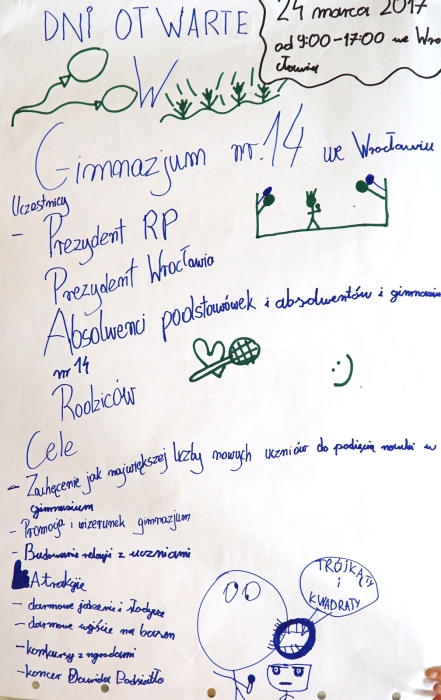 DNI OTWARTE
24 marca 2017
od 9:00-17:00 we Wro
cławiu
W
Gimnazjum nr. 14 we Wrocławiu
Uczestnicy
- Prezydent RP
Prezydent Wrocławia
Absolwenci podstawówek i absolwentów i gimnazium
nr 14
Rodziców
:)
Cele
- Zachęcenie jak największej liczby nowych uczniów do podjęcia nauki w
gimnazium
- Promocja i wizerunek gimnazjum
- Budowanie relacji z uczniami
Atrakcje
- darmowe jedzenie i słodycze
- darmowe wejście na basen
- konkursy z nagrodami
- koncer Dawida Podsiadło
TRÓJKĄTY
i
KWADRATY